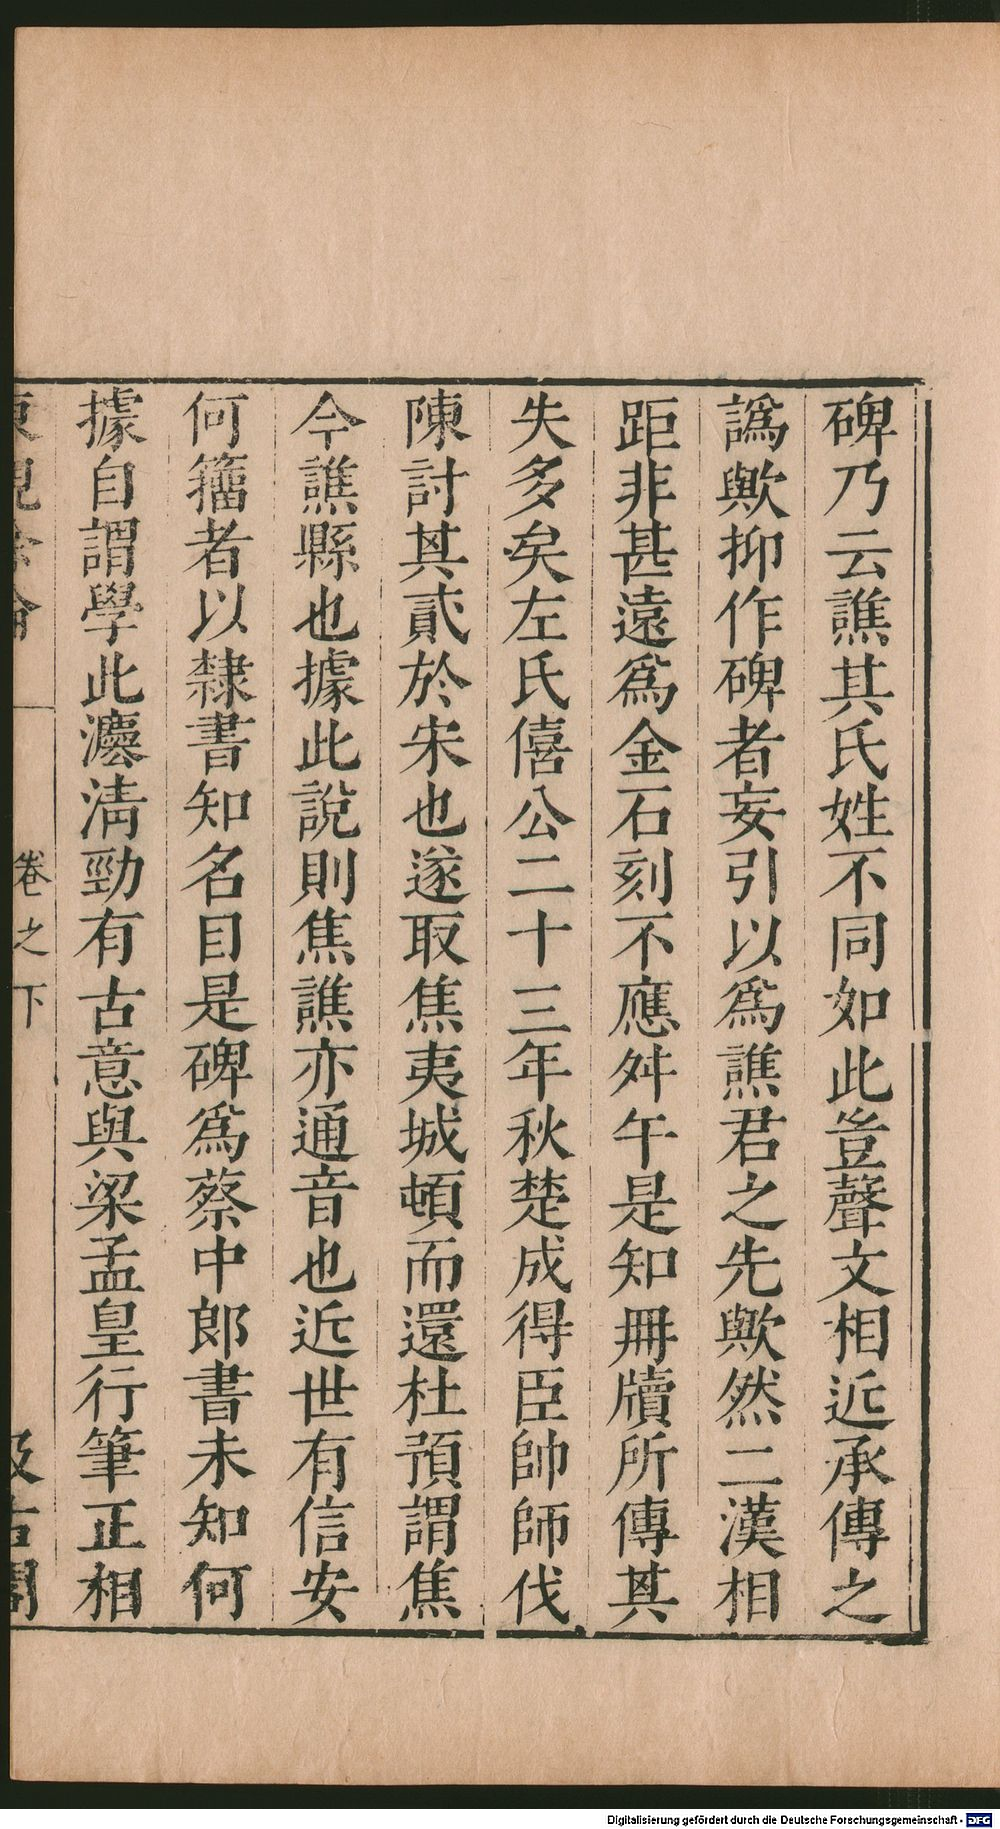 碑乃云譙其氏姓不同如此豈聲文相近承傳之
譌歟抑作碑者妄引以爲譙君之先歟然二漢相
距非甚遠爲金石刻不應舛午是知冊牘所傳其
失多矣左氏僖公二十三年秋楚成得臣帥師伐
陳討其貳於宋也遂取焦夷城頓而還杜預謂焦
今譙縣也據此說則焦譙亦通音也近世有信安
何籀者以隸書知名目是碑爲蔡中郎書未知何
據自謂學此灋清勁有古意與梁孟皇行筆正相
東觀餘論
卷之下
汲古閣
Digitalisierung gefördert durch die Deutsche Forschungsgemeinschaft - DFG